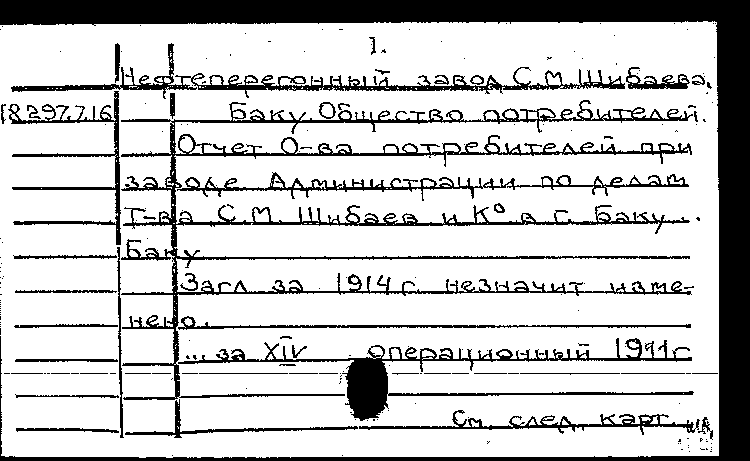 1.
Нефтеперегонный завод С.М. Шибаева.
18.297.7.16 Баку. Общество потребителей.
Отчет О-ва потребителей при
заводе Администрации по делам
Т-ва С.М. Шибаев и К° в г. Баку.
Баку
Загл за 1914 г. незначит изме-
нено.
... за XIV операционный 1911 г
См. след. карт.